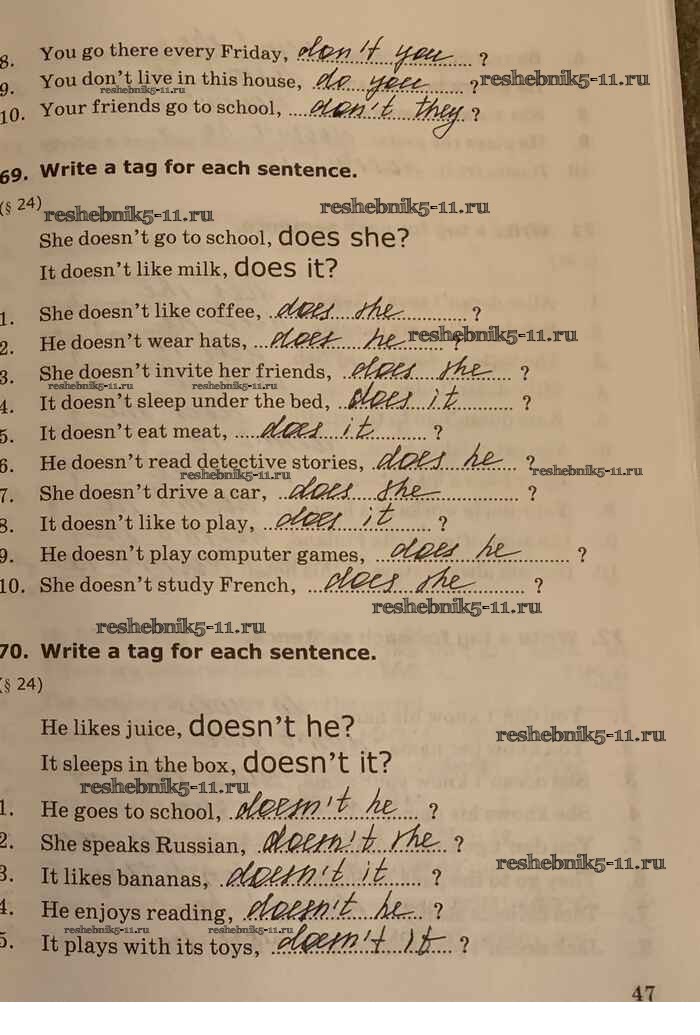 8. You go there every Friday, don't you ?
9. You don't live in this house, do you ? reshebnik5-11.ru
reshebnik5-11.ru
10. Your friends go to school, don't they ?
69. Write a tag for each sentence.
(§ 24)
reshebnik5-11.ru reshebnik5-11.ru
She doesn't go to school, does she?
It doesn't like milk, does it?
1. She doesn't like coffee, does she ?
2. He doesn't wear hats, does he ? reshebnik5-11.ru
3. She doesn't invite her friends, does she ?
reshebnik5-11.ru reshebnik5-11.ru
4. It doesn't sleep under the bed, does it ?
5. It doesn't eat meat, does it ?
6. He doesn't read detective stories, does he ?
reshebnik5-11.ru reshebnik5-11.ru
7. She doesn't drive a car, does she ?
8. It doesn't like to play, does it ?
9. He doesn't play computer games, does he ?
10. She doesn't study French, does she ?
reshebnik5-11.ru
reshebnik5-11.ru
70. Write a tag for each sentence.
(§ 24)
He likes juice, doesn't he?
reshebnik5-11.ru
It sleeps in the box, doesn't it?
reshebnik5-11.ru
1. He goes to school, doesn't he ?
2. She speaks Russian, doesn't she ?
reshebnik5-11.ru
3. It likes bananas, doesn't it ?
4. He enjoys reading, doesn't he ?
reshebnik5-11.ru reshebnik5-11.ru
5. It plays with its toys, doesn't it ?
47